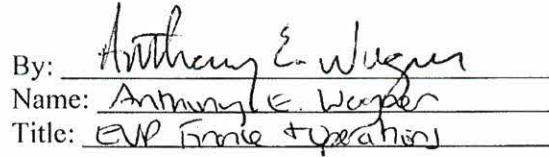 By: Anthony E. Wagner
Name: Anthony E. Wagner
Title: EVP Finance + Operations